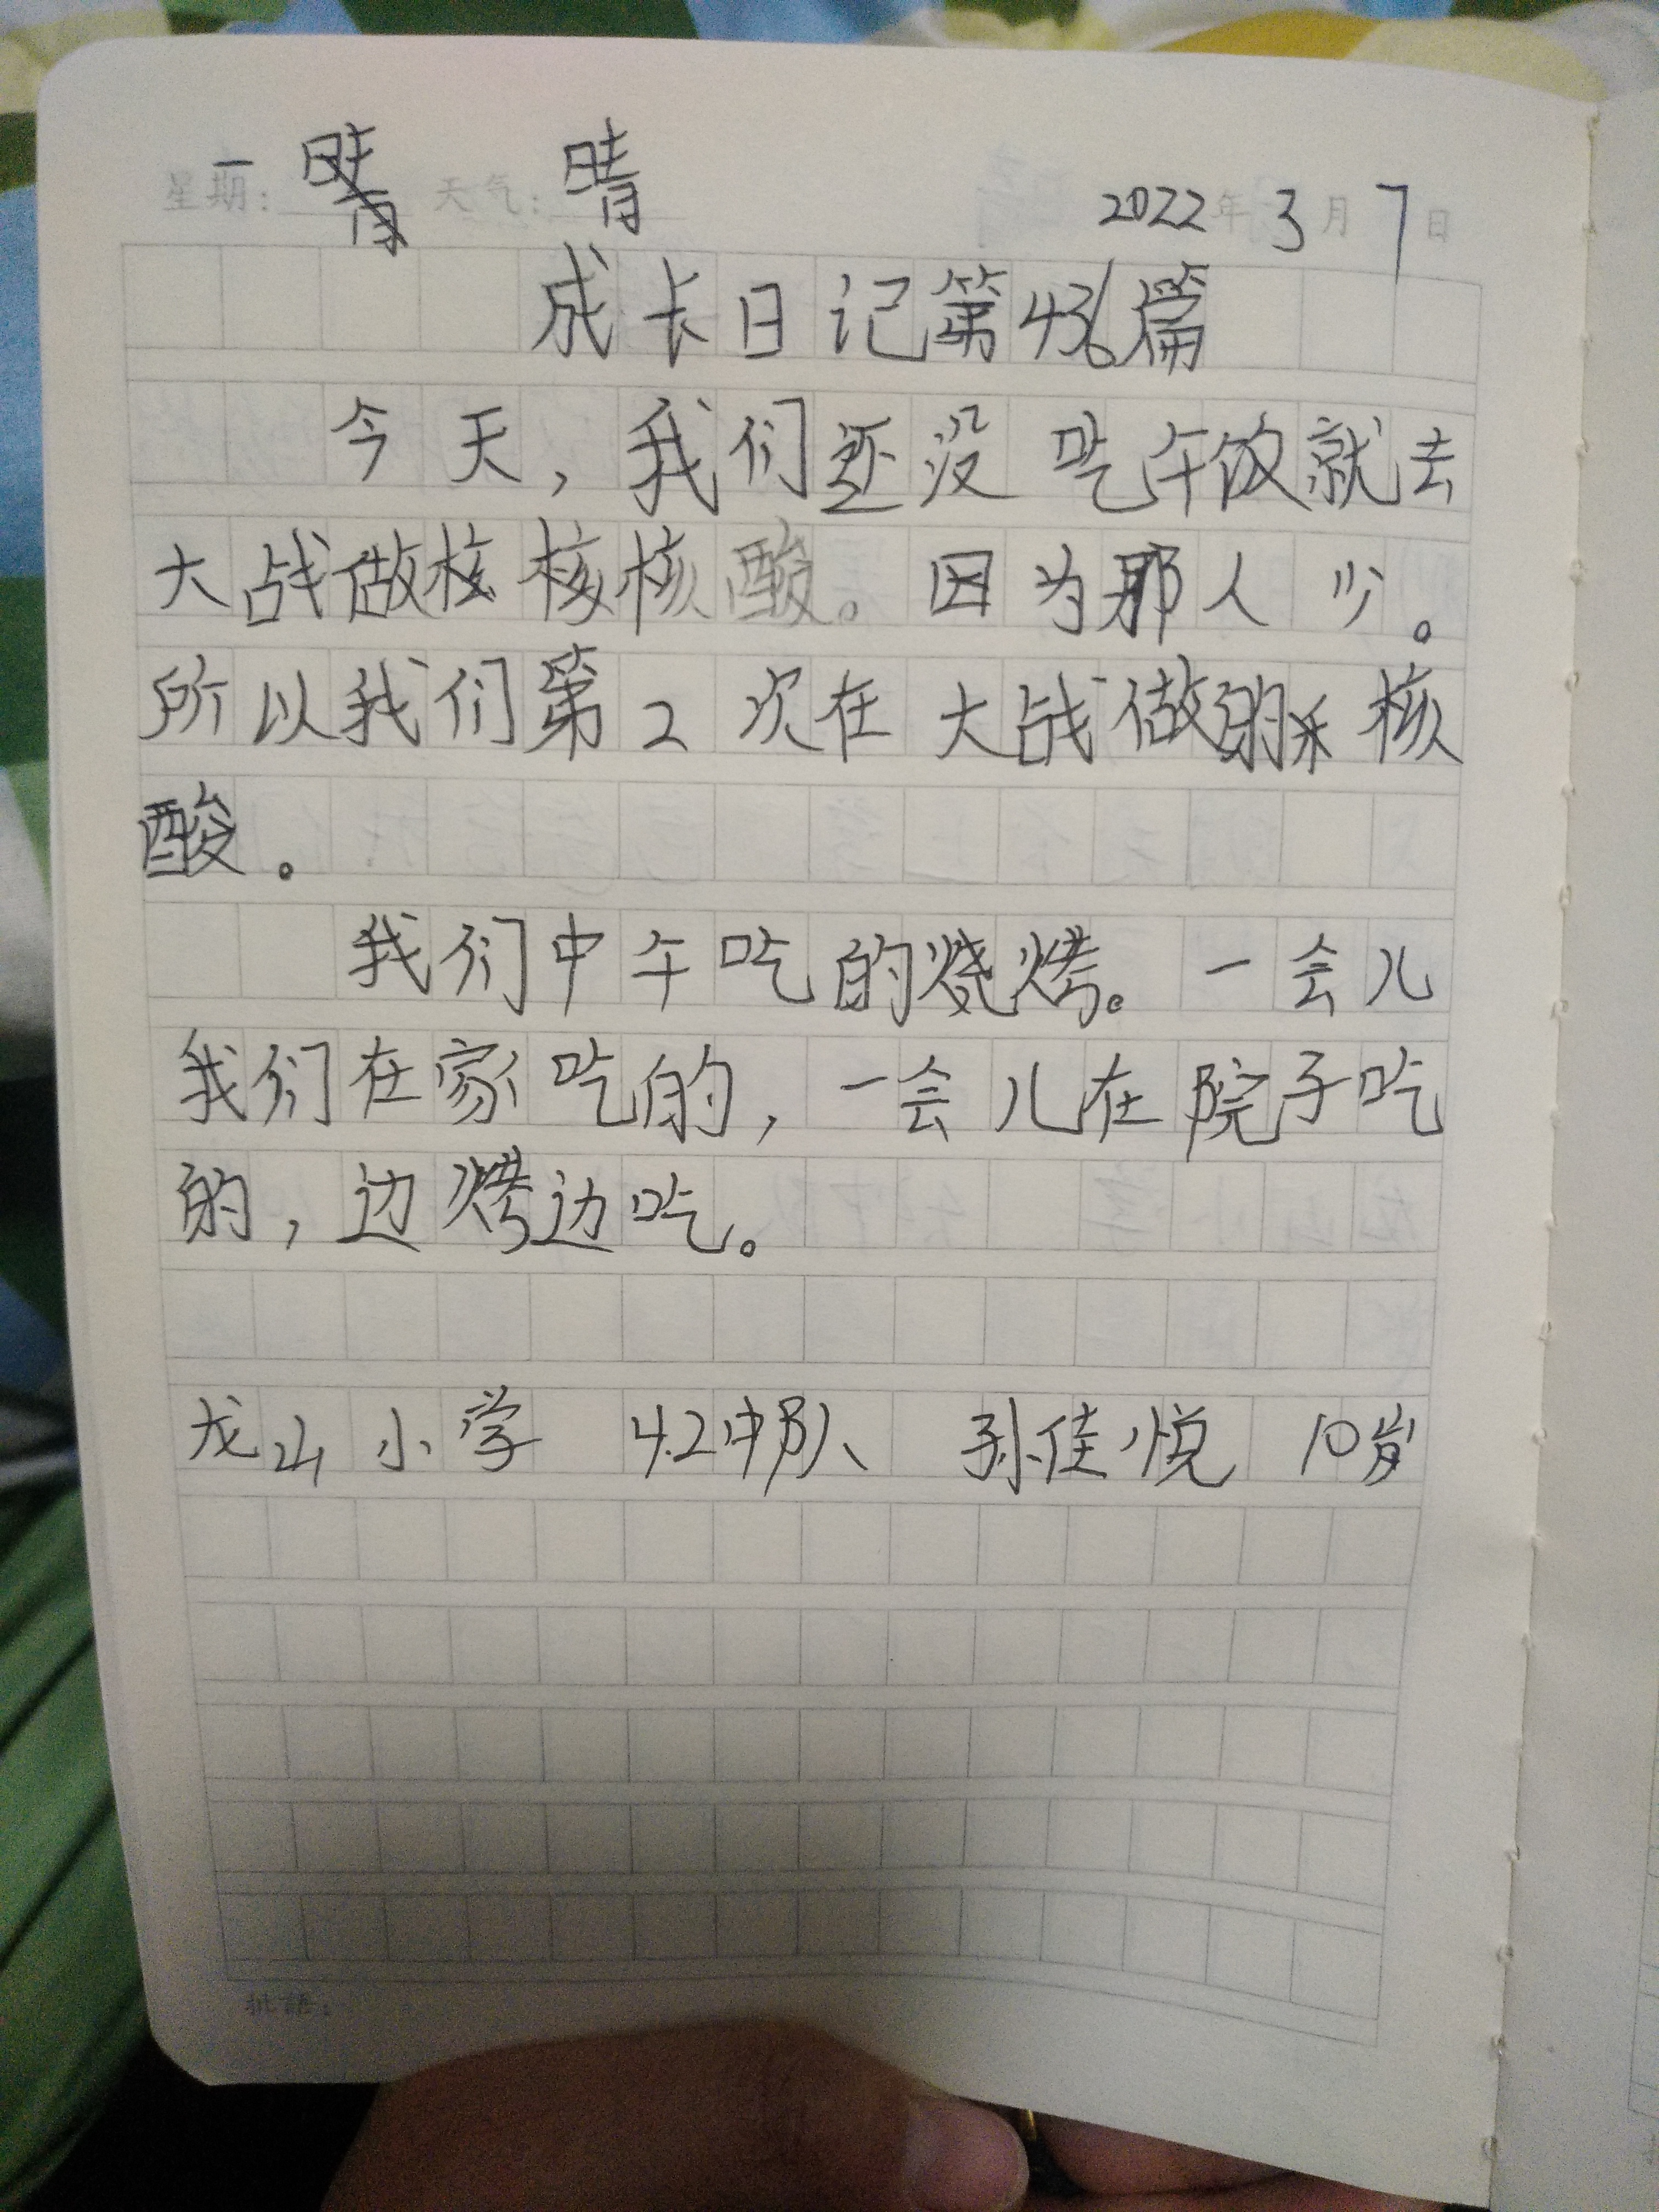 星期：一 晴 天气：晴 2022年3月7日
成长日记第436篇
今天，我们还没吃午饭就去
大战做核核核酸。因为那人少。
所以我们第2次在大战做的核
酸。
我们中午吃的烧烤。一会儿
我们在家吃的，一会儿在院子吃
的，边烤边吃。
龙山小学 4.2中队 孙佳悦 10岁
批语：